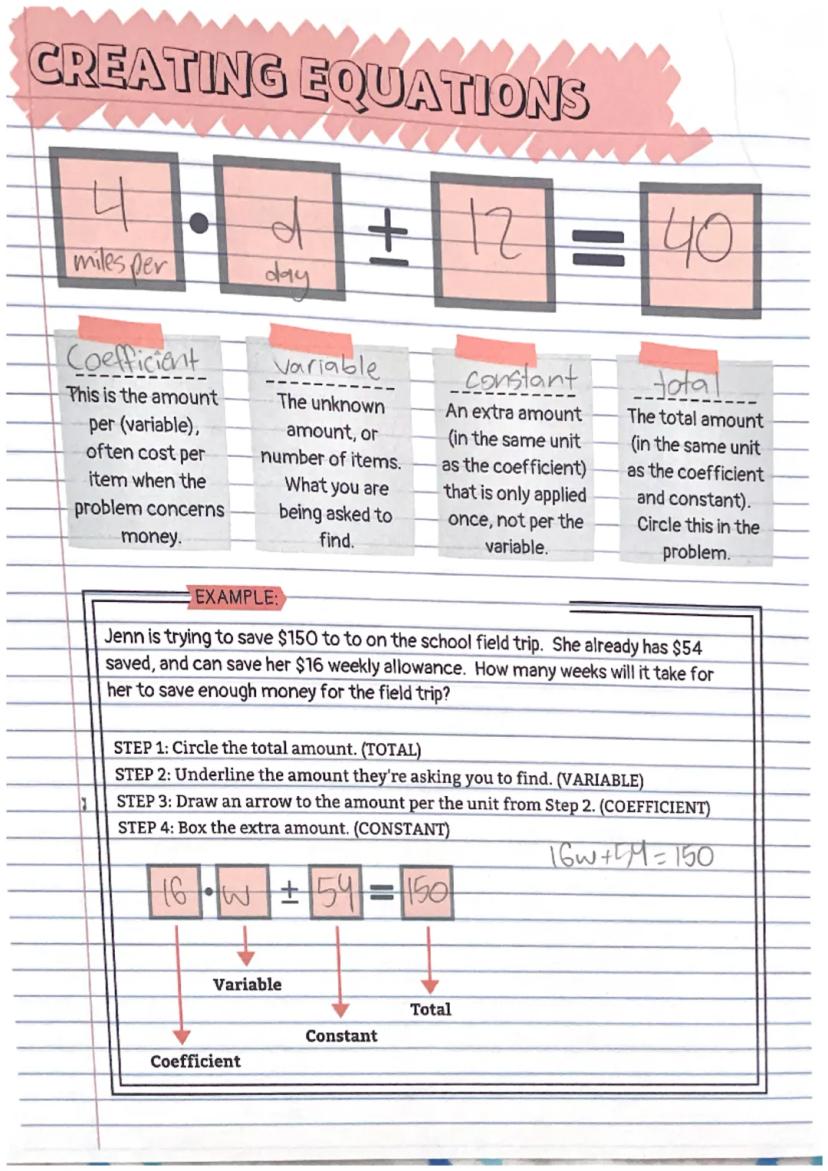 CREATING EQUATIONS
4 • d ± 12 = 40
miles per day
Coefficient
This is the amount
per (variable),
often cost per
item when the
problem concerns
money.
variable
The unknown
amount, or
number of items.
What you are
being asked to
find.
constant
An extra amount
(in the same unit
as the coefficient)
that is only applied
once, not per the
variable.
total
The total amount
(in the same unit
as the coefficient
and constant).
Circle this in the
problem.
EXAMPLE:
Jenn is trying to save $150 to to on the school field trip. She already has $54
saved, and can save her $16 weekly allowance. How many weeks will it take for
her to save enough money for the field trip?
STEP 1: Circle the total amount. (TOTAL)
STEP 2: Underline the amount they're asking you to find. (VARIABLE)
STEP 3: Draw an arrow to the amount per the unit from Step 2. (COEFFICIENT)
STEP 4: Box the extra amount. (CONSTANT)
16w+54=150
16 • w ± 54 = 150
Variable
Total
Constant
Coefficient